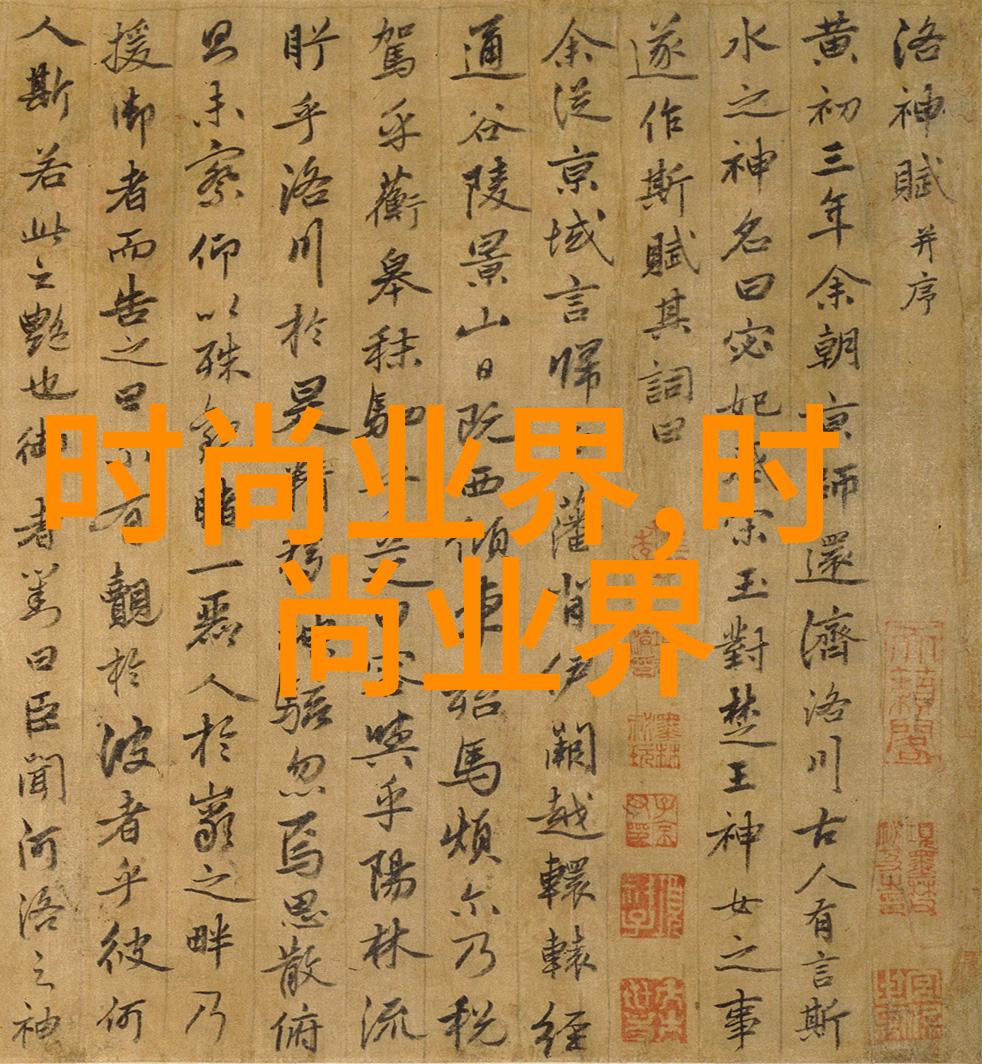 洛神賦并序
黄初三年余朝京師還濟洛川古人有言斯
水之神名曰宓妃感宋玉對楚王神女之事
遂作斯賦其詞曰
余從京域言歸藩背伊闕越轘轅經
通谷陵景山日既西傾車殆馬煩尒乃税
駕乎蘅皋秣駟乎芝田容與乎陽林流
眄乎洛川於是精移神駭忽焉思散俯
則未察仰以殊觀睹一麗人於巖之畔乃
援御者而告之曰尒有覿於彼者乎彼何
人斯若此之艷也御者對曰臣聞河洛之神
时尚业界,时
尚业界